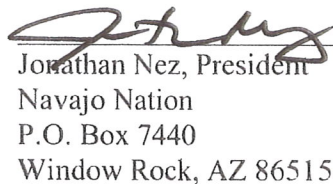 Jonathan Nez, President
Navajo Nation
P.O. Box 7440
Window Rock, AZ 86515